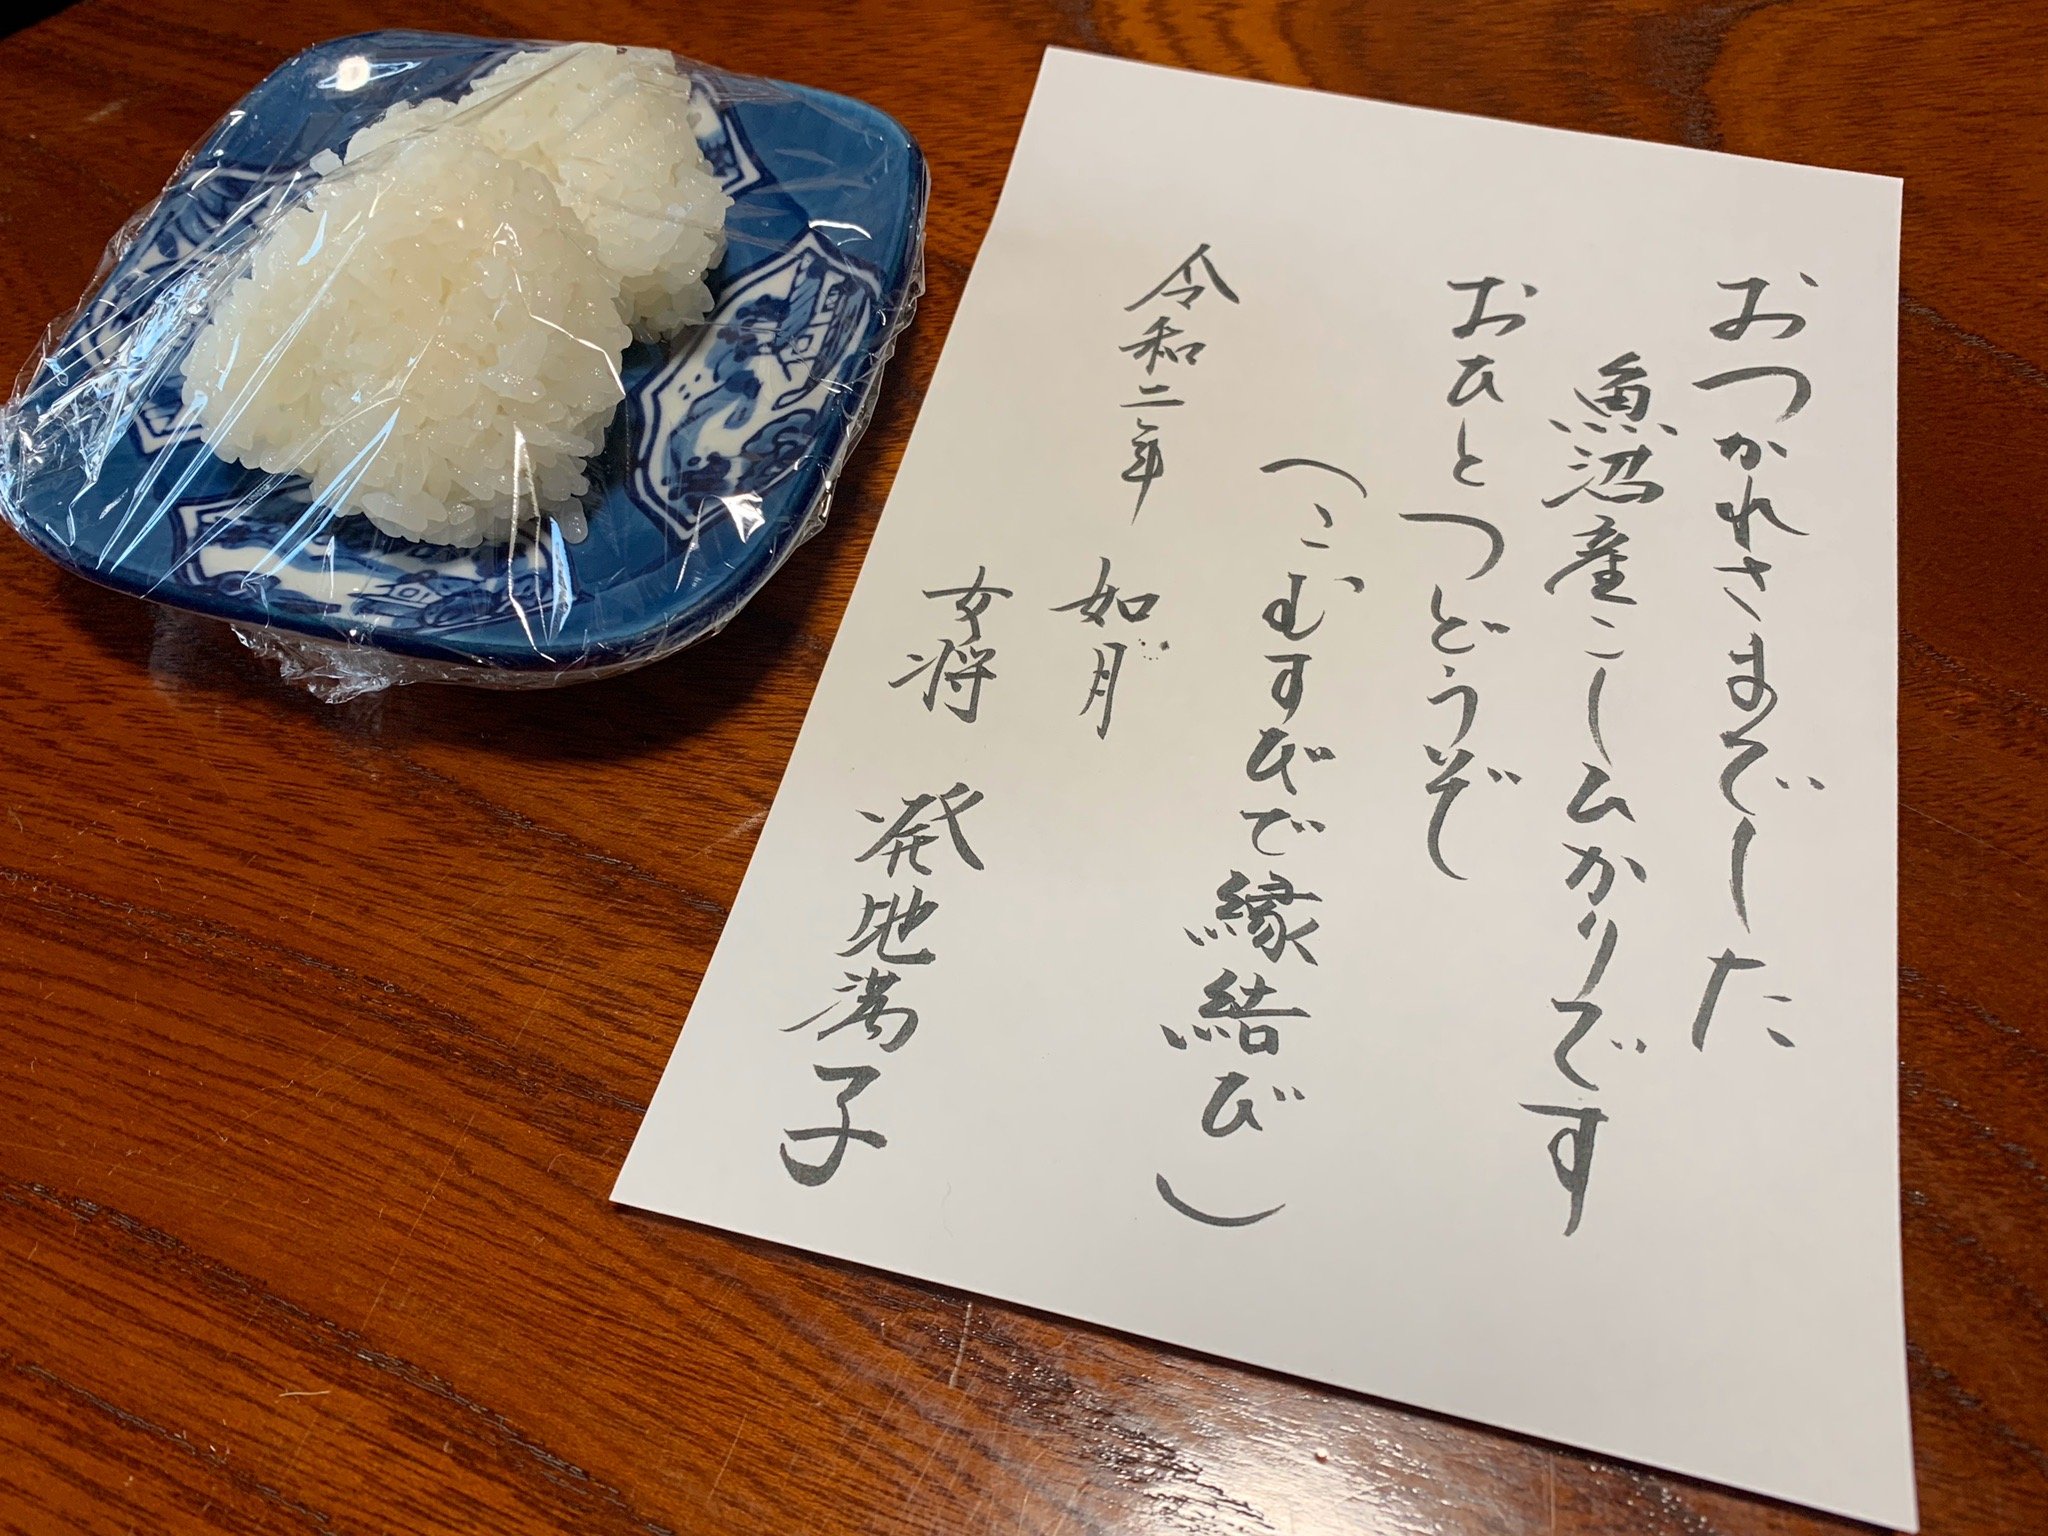 おつかれさまでした
魚沼産こしひかりです
おひとつどうぞ
(こむすびで縁結び)
令和二年
如月
女将 発地満子